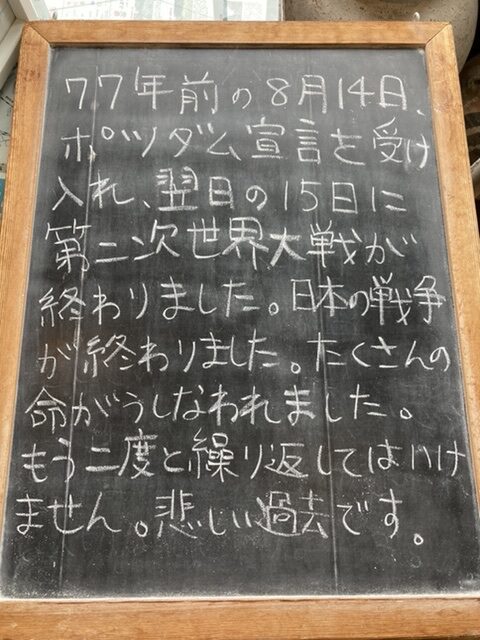 77年前の8月14日、
ポツダム宣言を受け
入れ、翌日の15日に
第二次世界大戦が
終わりました。日本の戦争
が終わりました。たくさんの
命がうしなわれました。
もう二度と繰り返してはいけ
ません。悲しい過去です。